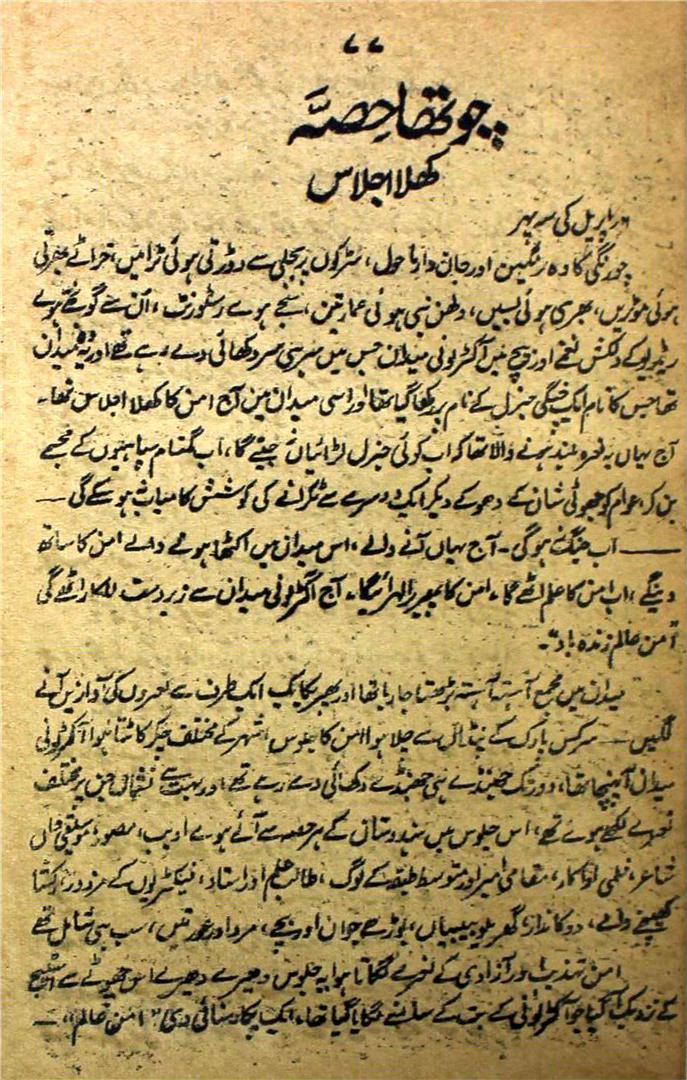 ۷۷
چوتھا حصہّ
کھلا اجلاس
اپریل کی سہ پہر
چورنگی کا وہ رنگین اور جان دار ماحول، سڑکوں پر بجلی سے دوڑتی ہوئی ٹرامیں، خراٹے بھرتی
ہوئی موٹریں، بھری ہوئی بسیں، دلھن بنی ہوئی عمارتین، سجے ہوے رسٹورنٹ، اُن سے گونجتے ہوے
ریڈیو کے دلکش نغمے اور بیچ میں آکٹرلونی میدان جس میں سر ہی سر دکھائی دے رہے تھے اور یہ وہ میدان
تھا جس کا نام ایک جنگی جنرل کے نام پر رکھا گیا تھا اور اسی میدان میں آج امن کا کھلا اجلاس تھا۔
آج یہاں یہ نعرہ بلند ہونے والا تھا کہ اب کوئی جنرل لڑائیاں نہ جیتے گا، اب گمنام سپاہیوں کے مجسمے
بن کر، عوام کو جھوٹی شان کے دھوکے دیکر ایک دوسرے سے ٹکرانے کی کوشش کامیاب نہ ہو سکے گی —
— اب جنگ نہ ہوگی۔ آج یہاں آنے والے، اس میدان میں اکٹھا ہونے والے امن کا ساتھ
دینگے، اب امن کا علم اٹھے گا، امن کا پھریرا لہرائیگا، آج آکٹرلونی میدان سے زبردست للکار اٹھے گی
"امن عالم زندہ باد"۔
میدان میں مجمع آہستہ آہستہ بڑھتا جا رہا تھا اور پھر یکایک ایک طرف سے نعروں کی آوازیں آنے
لگیں — سرکس پارک کے پنڈال سے چلا ہوا امن کا جلوس، شہر کے مختلف چکر کاٹتا ہوا آکٹرلونی
میدان آ پہنچا تھا، دور تک جھنڈے ہی جھنڈے دکھائی دے رہے تھے اور بہت سے نشان جن پر مختلف
نعرے لکھے ہوے تھے، اس جلوس میں ہندوستان کے ہر حصہ سے آئے ہوے ادیب، مصور، موسیقی داں
شاعر، فلمی اداکار، مقامی امیر اور متوسط طبقہ کے لوگ، طالب علم اور استاد، فیکٹریوں کے مزدور، رکشا
کھینچنے والے، دوکاندار، گھریلو بیبیاں، بوڑھے جوان اور بچے، مرد اور عورتیں، سب ہی شامل تھے
امن تہذیب اور آزادی کے نعرے لگاتا ہوا یہ جلوس دھیرے دھیرے اس چھوٹے سے اسٹیج
کے نزدیک آگیا جو آکٹرلونی کے بت کے سامنے لگایا گیا تھا، ایک پکار سنائی دی "امن عالم" —